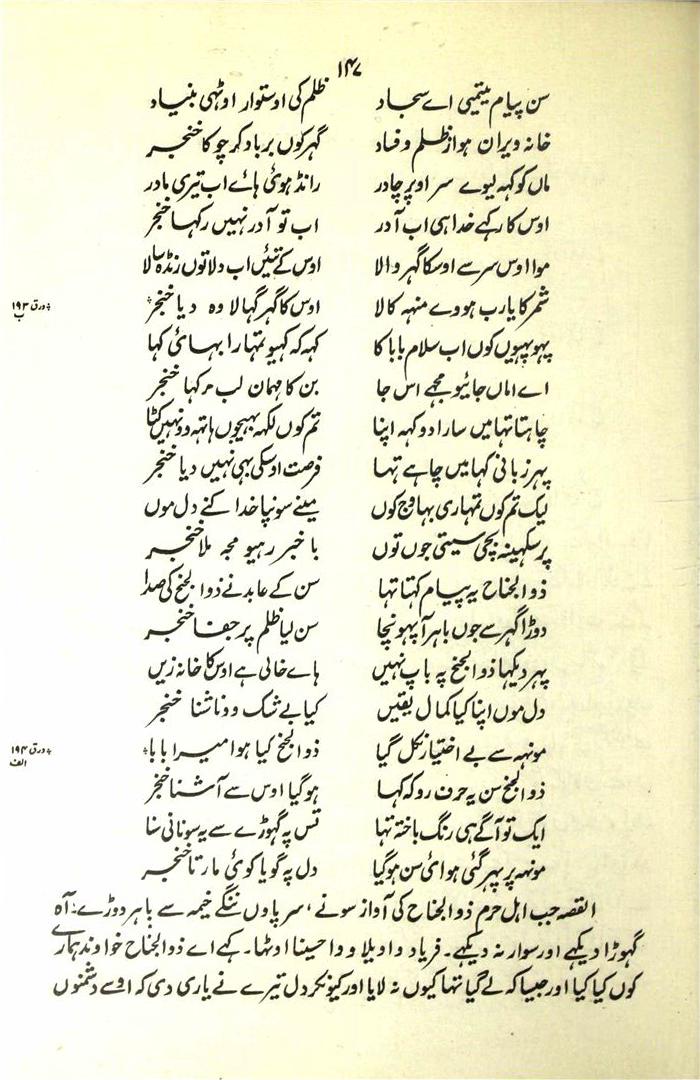 ۱۴۷
سن پیام یتیمی اے سجاد ظلم کی اوستوار اوٹھی بنیاد
خانہ ویران ہوا ز ظلم و فساد گہر کوں برباد کر چوکا خنجر
ماں کو کہہ لیوے سر اوپر چادر رانڈ ہوئی ہاے اب تیری مادر
اوس کا رکہے خدا ہی اب آدر اب تو آدر نہیں رکہا خنجر
موا اوس سر سے اوسکا گہر والا اوس کے تئیں اب دلاتوں رنڈسالا
شمر کا یارب ہووے منہہ کالا اوس کا گہر گہالا وہ دیا خنجر*
پہوپہیوں کوں اب سلام بابا کا کہہ کہ کہیو تمہارا بہائی کہا
اے اماں جائیو مجہے اس جا بن کا مہمان لب مرکہا خنجر
چاہتا تہا میں سارا دوکہہ اپنا تم کوں لکہہ بہیجوں ہاتہہ دو نہیں کٹا
پہر زبانی کہا میں چاہے تہا فرصت اوسکی بہی نہیں دیا خنجر
لیک تم کوں تمہاری بہاوج کوں مینے سونپا خدا کنے دل موں
پر سکہینہ بچی سیتی جوں توں با خبر رہیو مجہ ملا خنجر
ذوالجناح یہ پیام کہتا تہا سن کے عابد نے ذوالجنح کی صدا
دوڑا گہر سے جوں باہر آ پہونچا سن لیا ظلم پر جفا خنجر
پہر دیکہا ذوالجنح پہ باپ نہیں ہاے خالی ہے اوس کا خانہ زیں
دل موں اپنا کیا کمال یقیں کیا بے شک وو نا شنا خنجر
مونہہ سے بے اختیار نکل گیا ذوالجنح کیا ہوا میرا بابا*
ذوالجنح سن یہ حرف روکہ کہا ہو گیا اوس سے آشنا خنجر
ایک تو آگے ہی رنگ باختہ تہا تس پہ گہوڑے سے یہ سونانی سنا
مونہہ پر پہر گئی ہوائی سن ہوگیا دل پہ گویا کوئی مارتا خنجر
القصہ جب اہل حرم ذوالجناح کی آواز سونے، سر پاوں ننگے خیمہ سے باہر دوڑے۔ آہ
گہوڑا دیکہے اور سوار نہ دیکہے۔ فریاد واویلا و واحسینا اوٹہا۔ کہے اے ذوالجناح خاوند ہمارے
کوں کیا کیا اور جیسا کہ لے گیا تہا کیوں نہ لایا اور کیونکر دل تیرے نے یاری دی کہ اوسے دشمنوں
*ورق ۱۹۳ ب
*ورق ۱۹۴ الف